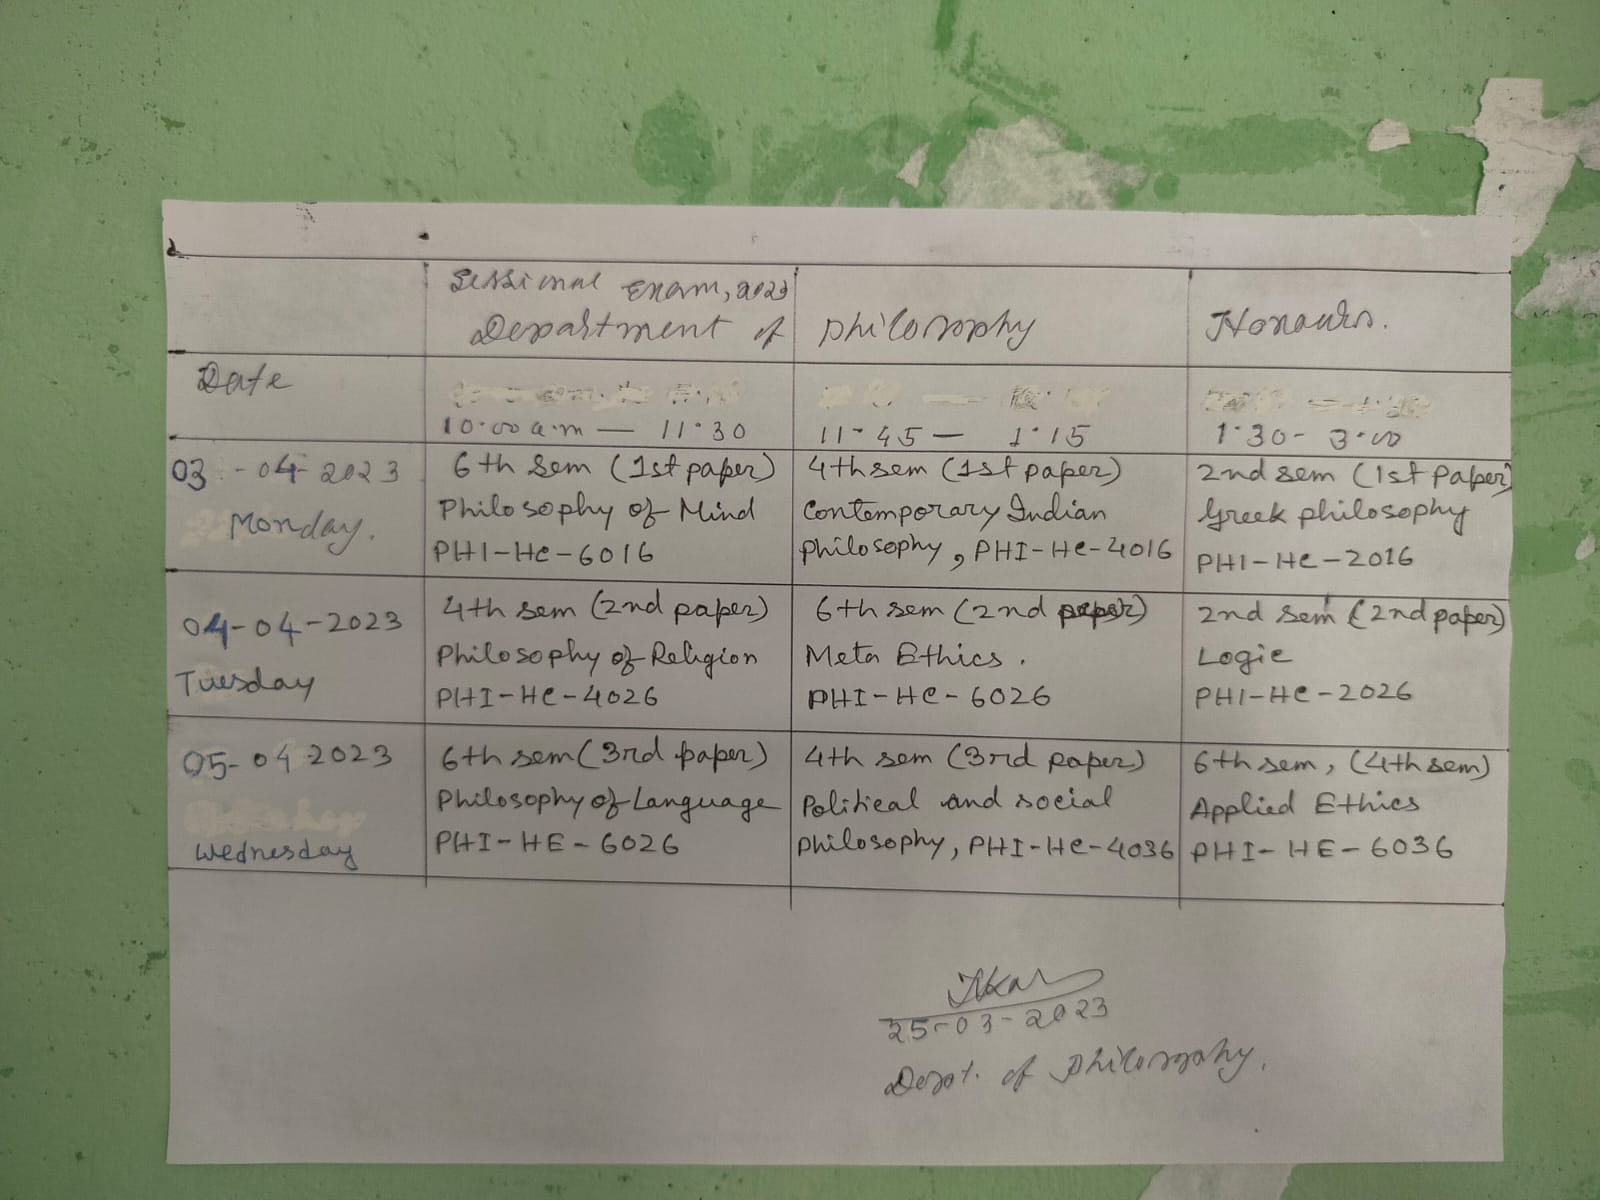 Sessional Exam, 2023
Department of philosophy Honours.
Date
10.00 a.m — 11.30
11.45 — 1.15
1.30 - 3.00
03 - 04 - 2023
Monday.
6th Sem (1st paper)
Philosophy of Mind
PHI-HC-6016
4th sem (1st paper)
Contemporary Indian
philosophy, PHI-HC-4016
2nd sem (1st Paper)
Greek philosophy
PHI-HC-2016
04-04-2023
Tuesday
4th sem (2nd paper)
Philosophy of Religion
PHI-HC-4026
6th sem (2nd paper)
Meta Ethics.
PHI-HC-6026
2nd sem (2nd paper)
Logic
PHI-HC-2026
05-04 2023
Wednesday
6th sem (3rd paper)
Philosophy of Language
PHI-HE-6026
4th sem (3rd paper)
Political and social
philosophy, PHI-HC-4036
6th sem, (4th sem)
Applied Ethics
PHI-HE-6036
25-03-2023
Dept. of Philosophy.